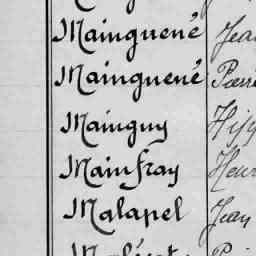 Mainguené Jea
Mainguené Pierre
Mainguy Hip
Mainfray Henr
Malapel Jean